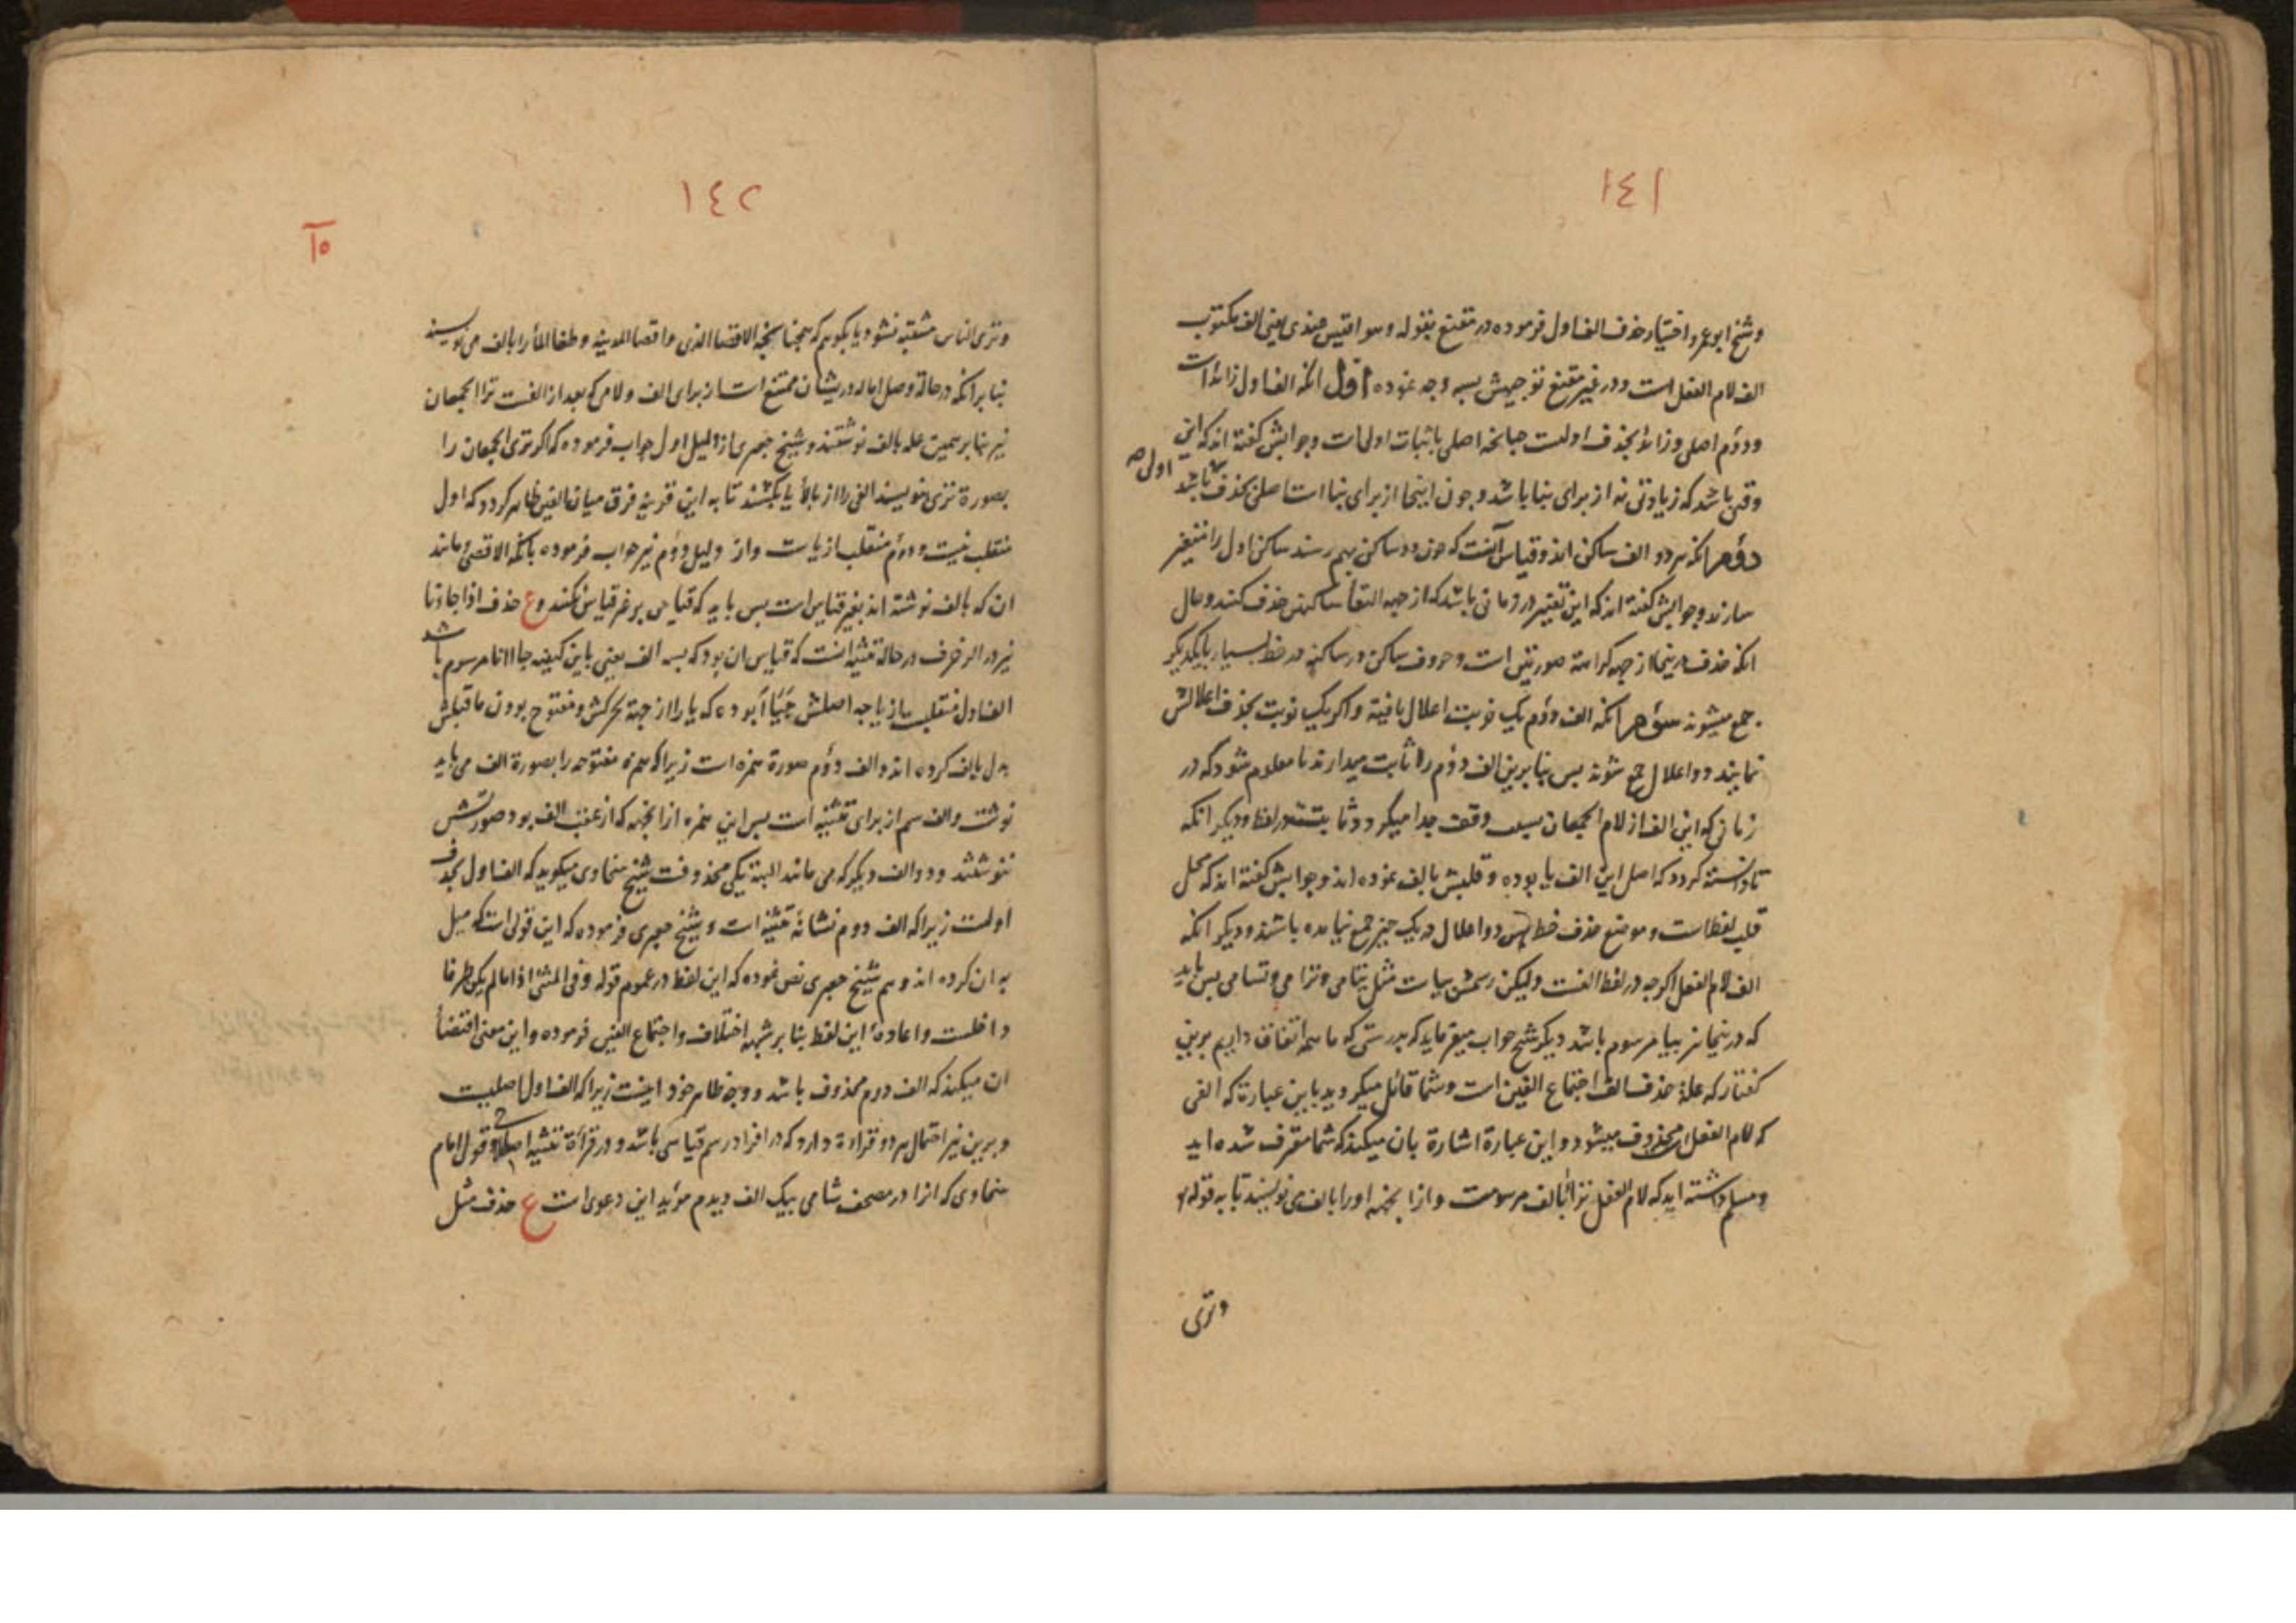 ١٤١
وشیخ ابو عمرو اختیار حذف الف اول فرموده در مقنع بقوله وهو اقیس عندی یعنی الف مکتوب
الف لام الفعل است ودر غیر مقنع توجیهش بسه وجه نموده اول انکه الف اول زائد است
ودوم اصلی وزائد بحذف اولیست چنانچه اصلی باثبات اولی است وجوابش کفته اند که این
وقتی باشد که زیادتی نه از برای بنا باشد وچون اینجا از برای بنا است اصلی بحذف باشد
اولی
دوم انکه هر دو الف ساکن اند وقیاس آنست که چون دو ساکن بهم رسند ساکن اول را متغیر
سازند وجوابش کفته اند که این تغییر در زمانی باشد که از جهه التقا ساکنین حذف کنند وحال
انکه حذف درینجا از جهه کراهة صورتین است وحروف ساکن در ساکن در خط بسیار بایکدیکر
جمع میشوند سوم انکه الف دوم یک نوبت اعلال یافته واکر یک نوبت بحذف اعلالش
نمایند دو اعلال جمع شوند بس بنا برین الف دوم را ثابت میدارند تا معلوم شود که در
زمانی که این الف از لام الجمعان بسبب وقف جدا میکردد ثابتست در لفظ ودیکر انکه
تا دانسته کردد که اصل این الف یا بوده وقلبش بالف نموده اند وجوابش کفته اند که محل
قلب لفظ است وموضع حذف خط بس دو اعلال در یک چیز جمع نیامده باشند ودیکر انکه
الف لام الفعل اکرچه در لفظ الفست ولیکن رسمش بیاست مثل یتامی وترامی وتسامی بس باید
که درینجا نیز بیا مرسوم باشد دیکر شیخ جواب میفرماید که بدرستی که ما همه اتفاق داریم برین
کفتار که علة حذف الف اجتماع الفین است وشما قائل میکردید باین عبارة که الفی
که لام الفعل است محذوف میشود واین عبارة اشارة بان میکند که شما معترف شده اید
ومسلم داشته اید که لام الفعل تراءا بالف مرسومست وازانجهه او را بالف می نویسند تا به قوله
وتری
١٤٢
١٥
وتری الناس مشتبه نشود یا بکویم که همچنانچه الاقصا الذی واقصا المدینه وطغا الماء را بالف می نویسند
بنا بر انکه در حالة وصل اماله دریشان ممتنع است از برای الف ولامی که بعد از الفست ترا الجمعان
نیز بنا بر همین عله بالف نوشتند وشیخ جعبری از دلیل اول جواب فرموده که اکر تری الجمعان را
بصورة تری بنویسند الفی را از بالاء یا بکشند تا به این قرینه فرق میان الفین ظاهر کردد که اول
منقلب نیست ودوم منقلب از یاست واز دلیل دوم نیز جواب فرموده بانکه الاقصی ومانند
ان که بالف نوشته اند بغیر قیاس است بس باید که قیاسی بر غیر قیاس نکنند وع حذف اذا جاءنا
نیز در الزخرف در حالة تثنیه انست که قیاس ان بود که بسه الف یعنی باین کیفیه جااانا مرسوم باشد
الف اول منقلب از یا چه اصلش جَیَأَا بوده که یا را از جهة تحرکش ومفتوح بودن ماقبلش
بدل بالف کرده اند والف دوم صورة همزه است زیرا که همزه مفتوحه را بصورة الف می باید
نوشت والف سیم از برای تثنیه است بس این همزه ازانجهه که از عقب الف بود صورتش
ننوشتند ودو الف دیکر که می مانند البته یکی محذوفست شیخ سخاوی میکوید که الف اول بحذف
اولست زیرا که الف دوم نشانهٔ تثنیه است وشیخ جعبری فرموده که این قولی است که میل
به ان کرده اند وهم شیخ جعبری نص نموده که این لفظ در عموم قوله وفی المثنی اذا ما لم یکن طرفا
داخلست واعادهٔ این لفظ بنا بر شبهه اختلاف واجتماع الفین فرموده واین معنی اقتضاء
ان میکند که الف دوم محذوف باشد ووجه ظاهر خود اینست زیرا که الف اول اصلیست
وبرین نیز احتمال هر دو قراءة دارد که در افراد رسم قیاسی باشد ودر قراءة تثنیه اصطلاحی وقول امام
سخاوی که انرا در مصحف شامی بیک الف دیدم مؤید این دعوی است ع حذف مثل